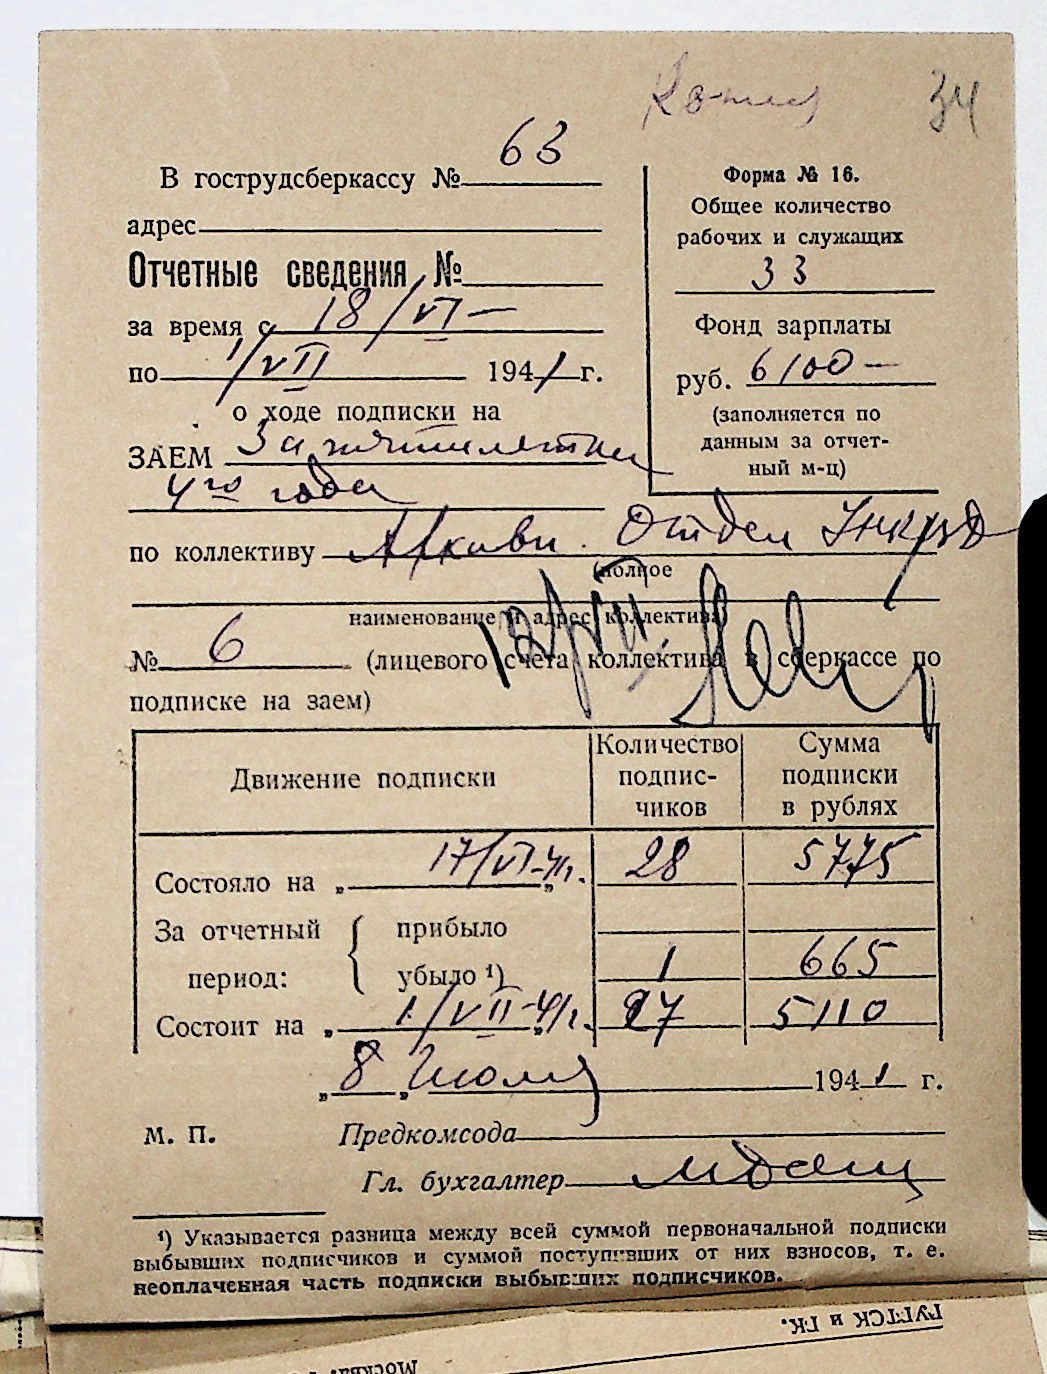 Копия
34
В гострудсберкассу № 63
адрес
Отчетные сведения №
за время с 18/VI —
по 1/VII 1941 г.
о ходе подписки на
ЗАЕМ 3й пятилетки
4го года
Форма № 16.
Общее количество
рабочих и служащих
33
Фонд зарплаты
руб. 6100 —
(заполняется по
данным за отчет-
ный м-ц)
по коллективу Архивн. Отдел УНКВД
(полное
наименование и адрес коллектива)
12/VII
№ 6 (лицевого счета коллектива в сберкассе по
подписке на заем)
Движение подписки
Количество
подпис-
чиков
Сумма
подписки
в рублях
Состояло на „ 17/VI-41г. „ 28 5775
За отчетный прибыло
период: убыло ¹) 1 665
Состоит на „ 1/VII-41г. „ 27 5110
„ 8 „ Июля 1941 г.
М. П. Предкомсода
Гл. бухгалтер
¹) Указывается разница между всей суммой первоначальной подписки
выбывших подписчиков и суммой поступивших от них взносов, т. е.
неоплаченная часть подписки выбывших подписчиков.
и ГК.
Москва.